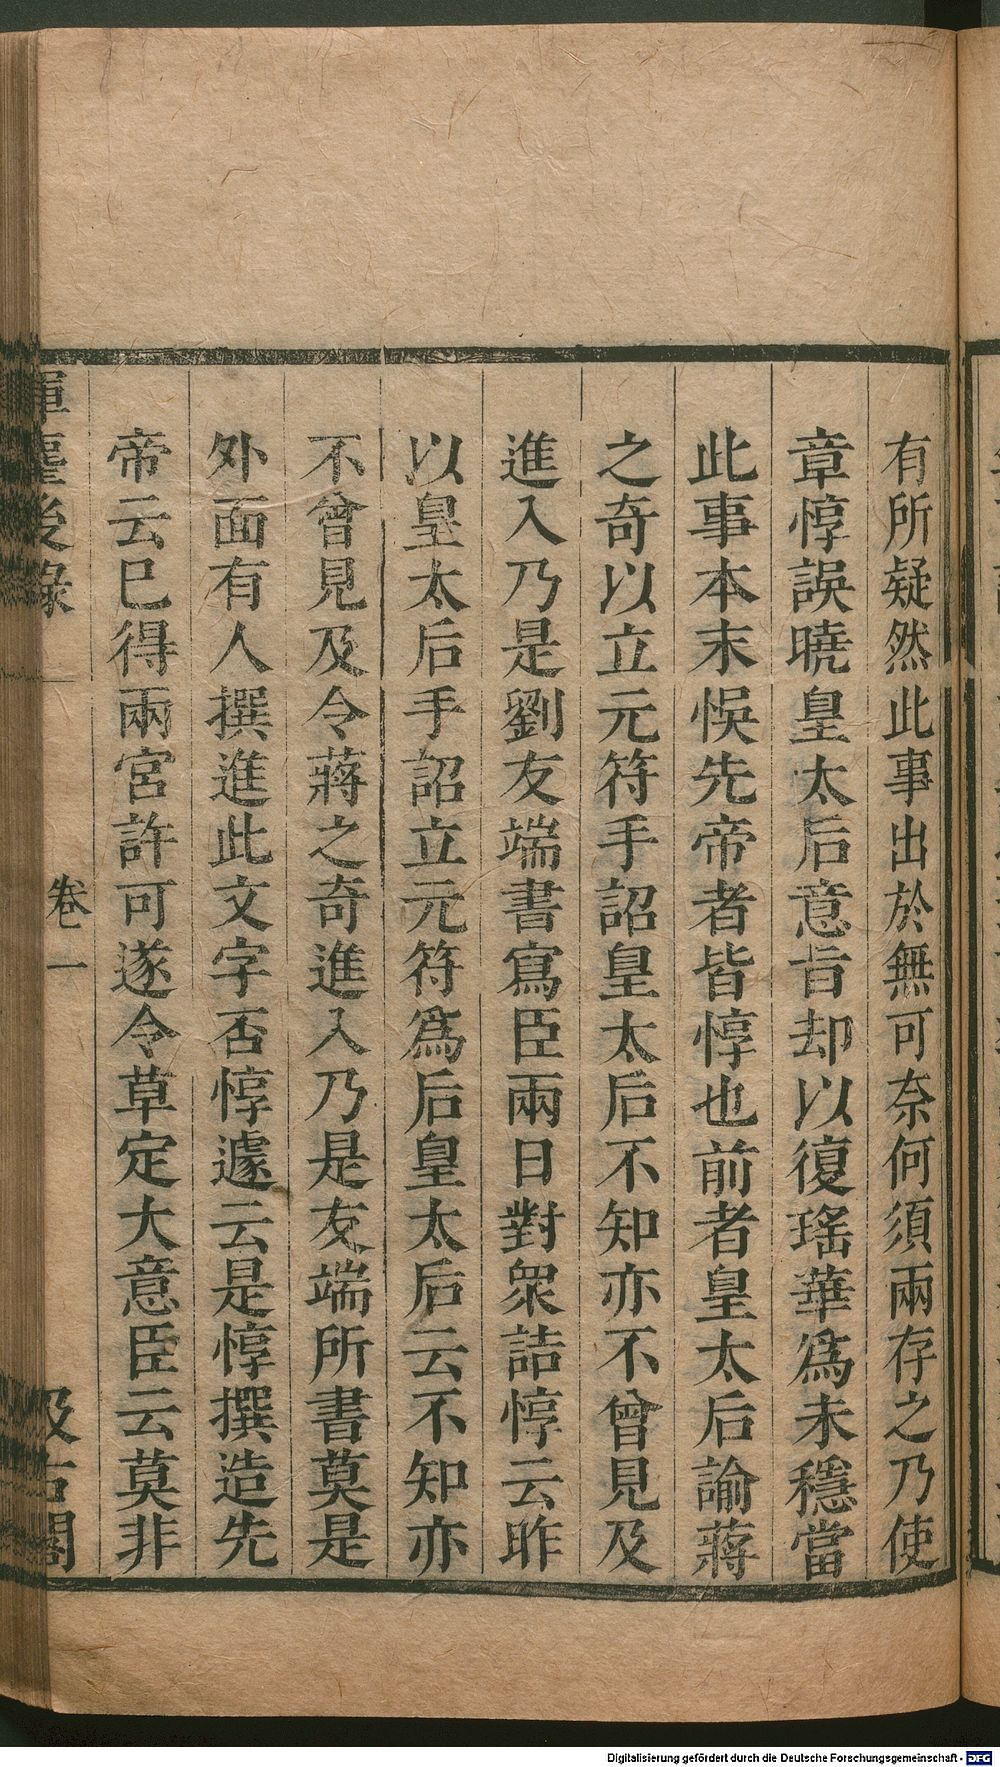 有所疑然此事出於無可奈何須兩存之乃使
章惇誤曉皇太后意旨却以復瑤華爲未穩當
此事本末悞先帝者皆惇也前者皇太后諭蔣
之奇以立元符手詔皇太后不知亦不曾見及
進入乃是劉友端書寫臣兩日對衆詰惇云昨
以皇太后手詔立元符爲后皇太后云不知亦
不曾見及令蔣之奇進入乃是友端所書莫是
外面有人撰進此文字否惇遽云是惇撰造先
帝云巳得兩宮許可遂令草定大意臣云莫非
揮麈後錄 卷一 汲古閣
Digitalisierung gefördert durch die Deutsche Forschungsgemeinschaft - DFG